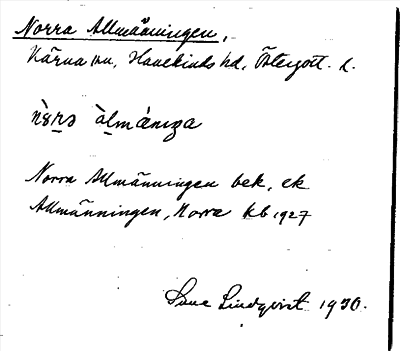 Norra Allmänningen,
Kärna sn, Hanekinds hd, Östergötl. l.
Norra Allmänningen bek, ek
Allmänningen, Norra kb 1927
Sune Lindqvist 1930.